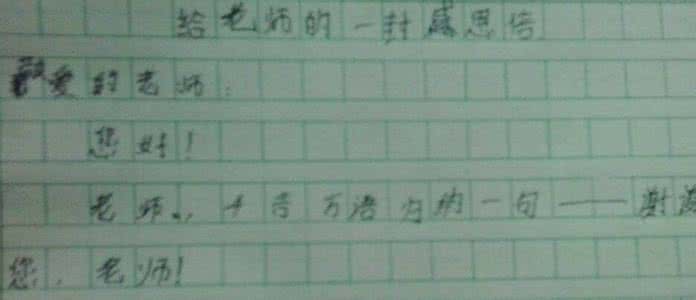 给老师的一封感恩信
敬爱的老师：
您好！
老师，千言万语为納一句——谢谢
您，老师！